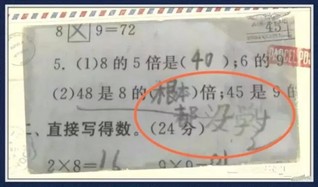 8 × 9=72
5. (1)8 的 5 倍是(40);6 的 9
(2)48 是 8 的(根本)倍;45 是 9 的
都没学
二、直接写得数。(24 分)
2×8=16